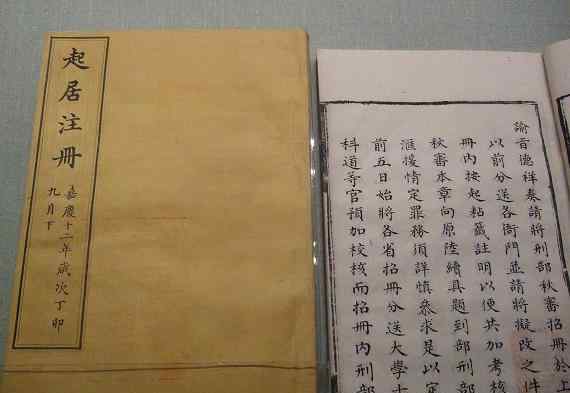 起居注冊
嘉慶十二年歲次丁卯
九月下
諭旨德祥奏請將刑部秋審招冊於上
以前分送各衙門並請將擬改之件
冊內按起粘籤註明以便共加考核
秋審本章向原陸續具題到部刑部
滙情定罪務須詳慎參求是以定
前五日始將各省招冊分送大學士
科道等官預加校核而招冊內刑部